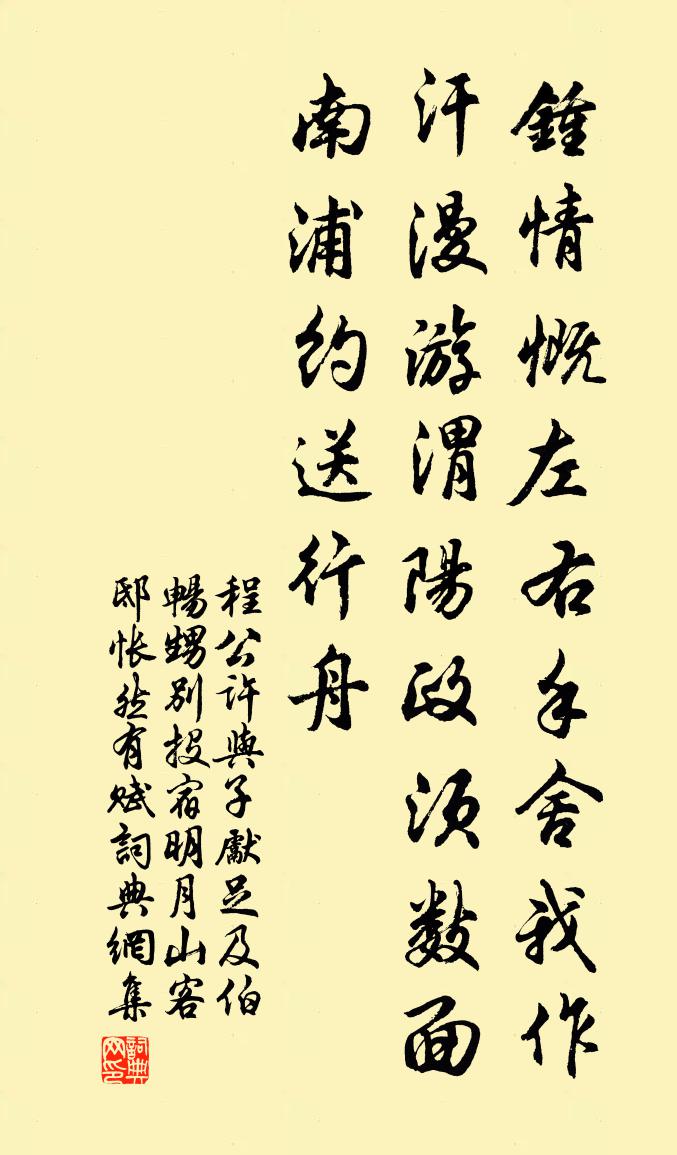 鍾情慨左右手舍我作
汗漫游渭陽政須數面
南浦約送行舟
程公許與子獻足及伯
暢甥別投宿明月山客
邸悵然有賦詞典網集
詞典网印